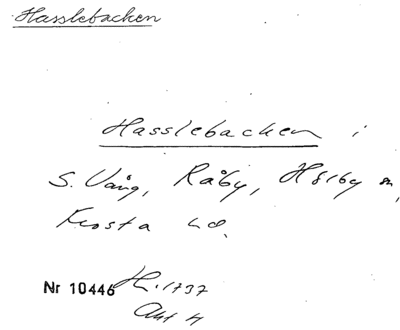 Hasslebacken
Hasslebacken i
S. Vång, Råby, Hörby sn,
Frosta hd.
Nr 10446 H. 1737
Akt 4